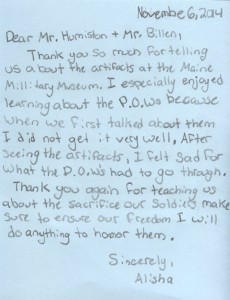 November 6, 2014
Dear Mr. Humiston + Mr. Billen,
Thank you so much for telling
us about the artifacts at the Maine
Millitary Museum. I especially enjoyed
learning about the P.O.Ws because
when we first talked about them
I did not get it very well. After
seeing the artifacts, I felt sad for
what the P.O.W's had to go through.
Thank you again for teaching us
about the sacrifice our soldiers make
sure to ensure our freedom I will
do anything to honor them.
Sincerely,
Alisha